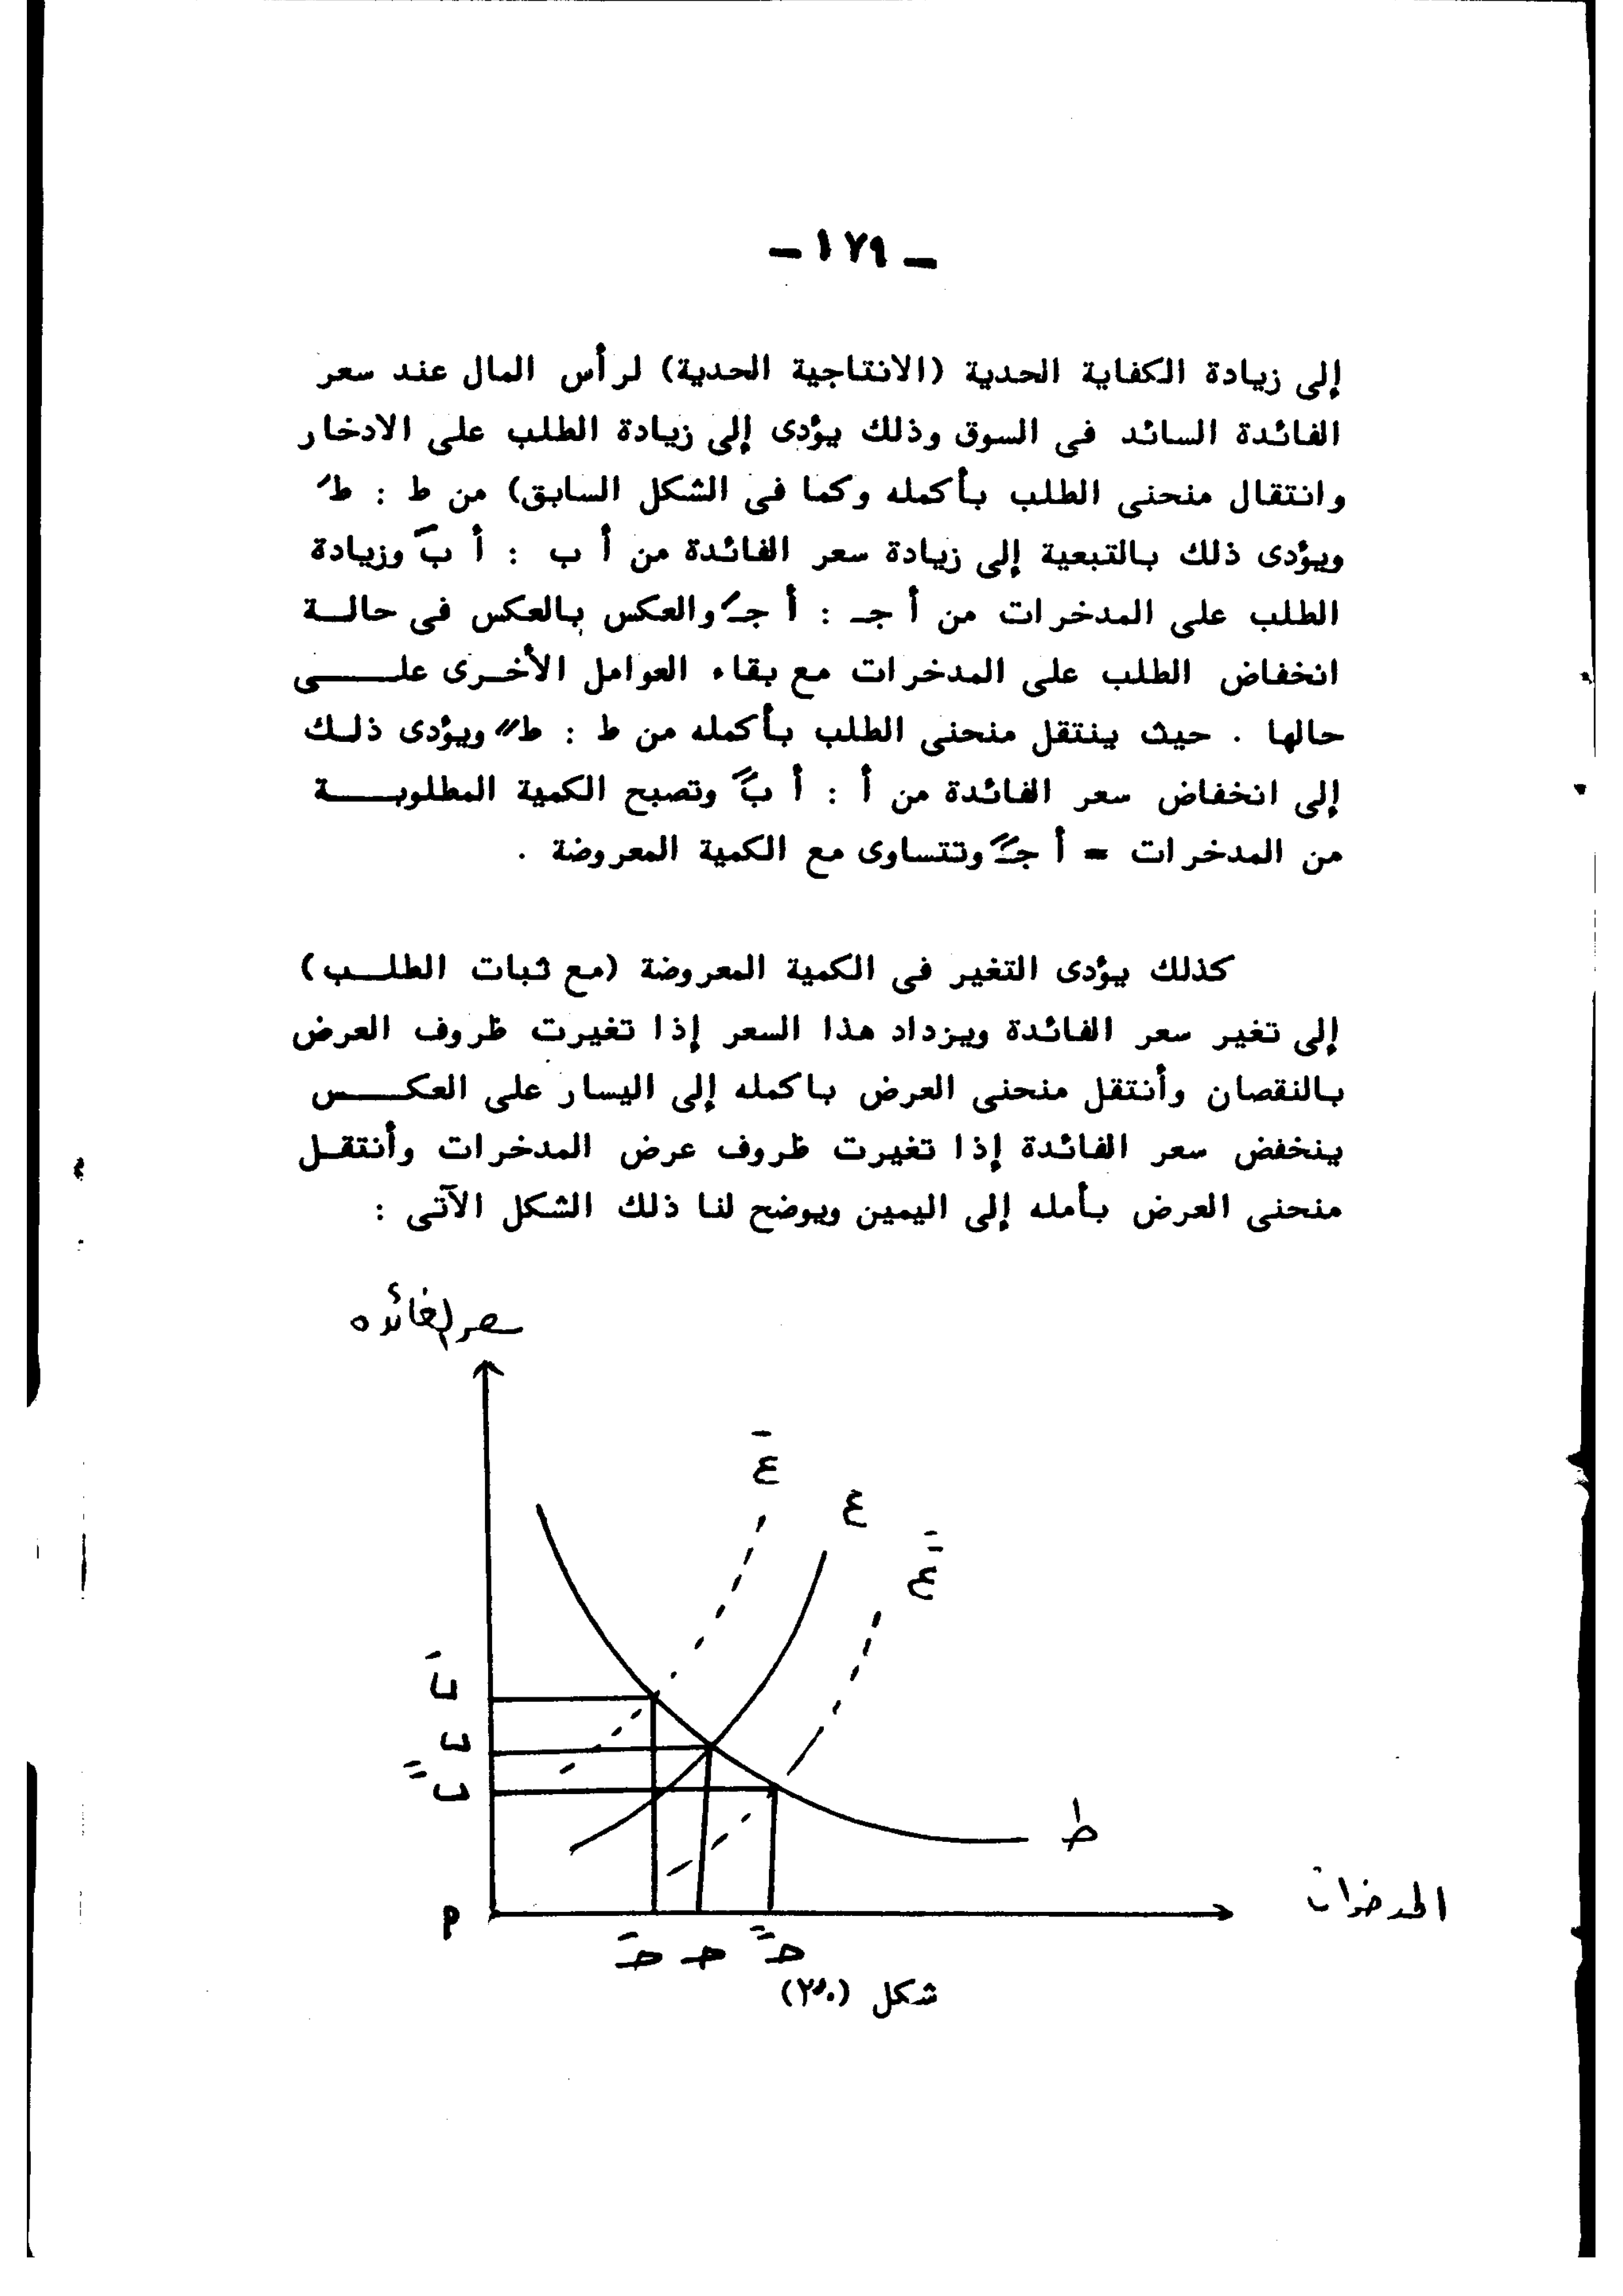 - ١٧٩ -
إلى زيادة الكفاية الحدية (الانتاجية الحدية) لرأس المال عند سعر
الفائدة السائد فى السوق وذلك يؤدى إلى زيادة الطلب على الادخار
وانتقال منحنى الطلب بأكمله وكما فى الشكل السابق) من ط : طَ
ويؤدى ذلك بالتبعية إلى زيادة سعر الفائدة من أ ب : أ بَ وزيادة
الطلب على المدخرات من أ جـ : أ جـَ والعكس بالعكس فى حالــة
انخفاض الطلب على المدخرات مع بقاء العوامل الأخـرى علـــــى
حالها . حيث ينتقل منحنى الطلب بأكمله من ط : ط" ويؤدى ذلـك
إلى انخفاض سعر الفائدة من أ : أ ب" وتصبح الكمية المطلوبـــــة
من المدخرات = أ جـ" وتتساوى مع الكمية المعروضة .
كذلك يؤدى التغير فى الكمية المعروضة (مع ثبات الطلــب)
إلى تغير سعر الفائدة ويزداد هذا السعر إذا تغيرت ظروف العرض
بالنقصان وأنتقل منحنى العرض باكمله إلى اليسار على العكــــس
ينخفض سعر الفائدة إذا تغيرت ظروف عرض المدخرات وأنتقـل
منحنى العرض بأمله إلى اليمين ويوضح لنا ذلك الشكل الآتى :
سعر الفائده
عَ
ع
ع"
بَ
ب
ب"
ط
المدخرات
أ
حـَ حـ حـ"
شكل